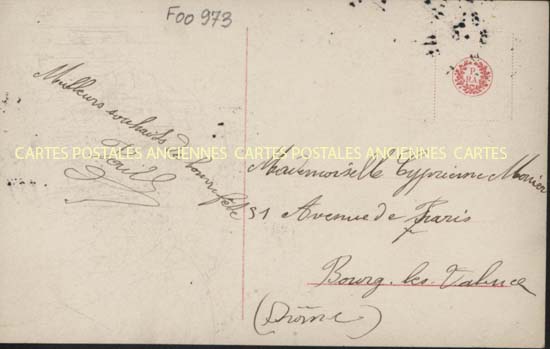 F00 973
P.
RA
Meilleurs souhaits de bonne fête
CARTES POSTALES ANCIENNES CARTES POSTALES ANCIENNES CARTES
Mademoiselle Cyprienne Monier
51 Avenue de Paris
Bourg-les-Valence
(Drôme)